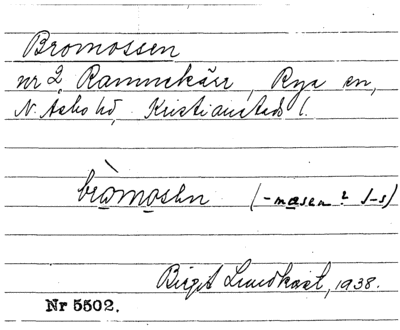 Bromossen
nr 2, Rammekärr, Rya sn,
N. Asbo hd, Kristianstads l.
bròmosɛn (-masen? J-s)
Birgit Lundkvist, 1938.
Nr 5502.